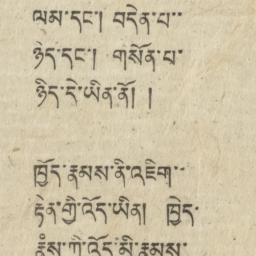 ལམ་དང་། བདེན་པ་
ཉེད་དང་། གསོན་པ་
ཉིད་དེ་ཡིན་ནོ། །
ཁྱོད་རྣམས་ནི་འཇིག་
རྟེན་གྱི་འོད་ཡིན། ཁྱེད་
རྣམས་ཀྱི་འོད་མི་རྣམས་